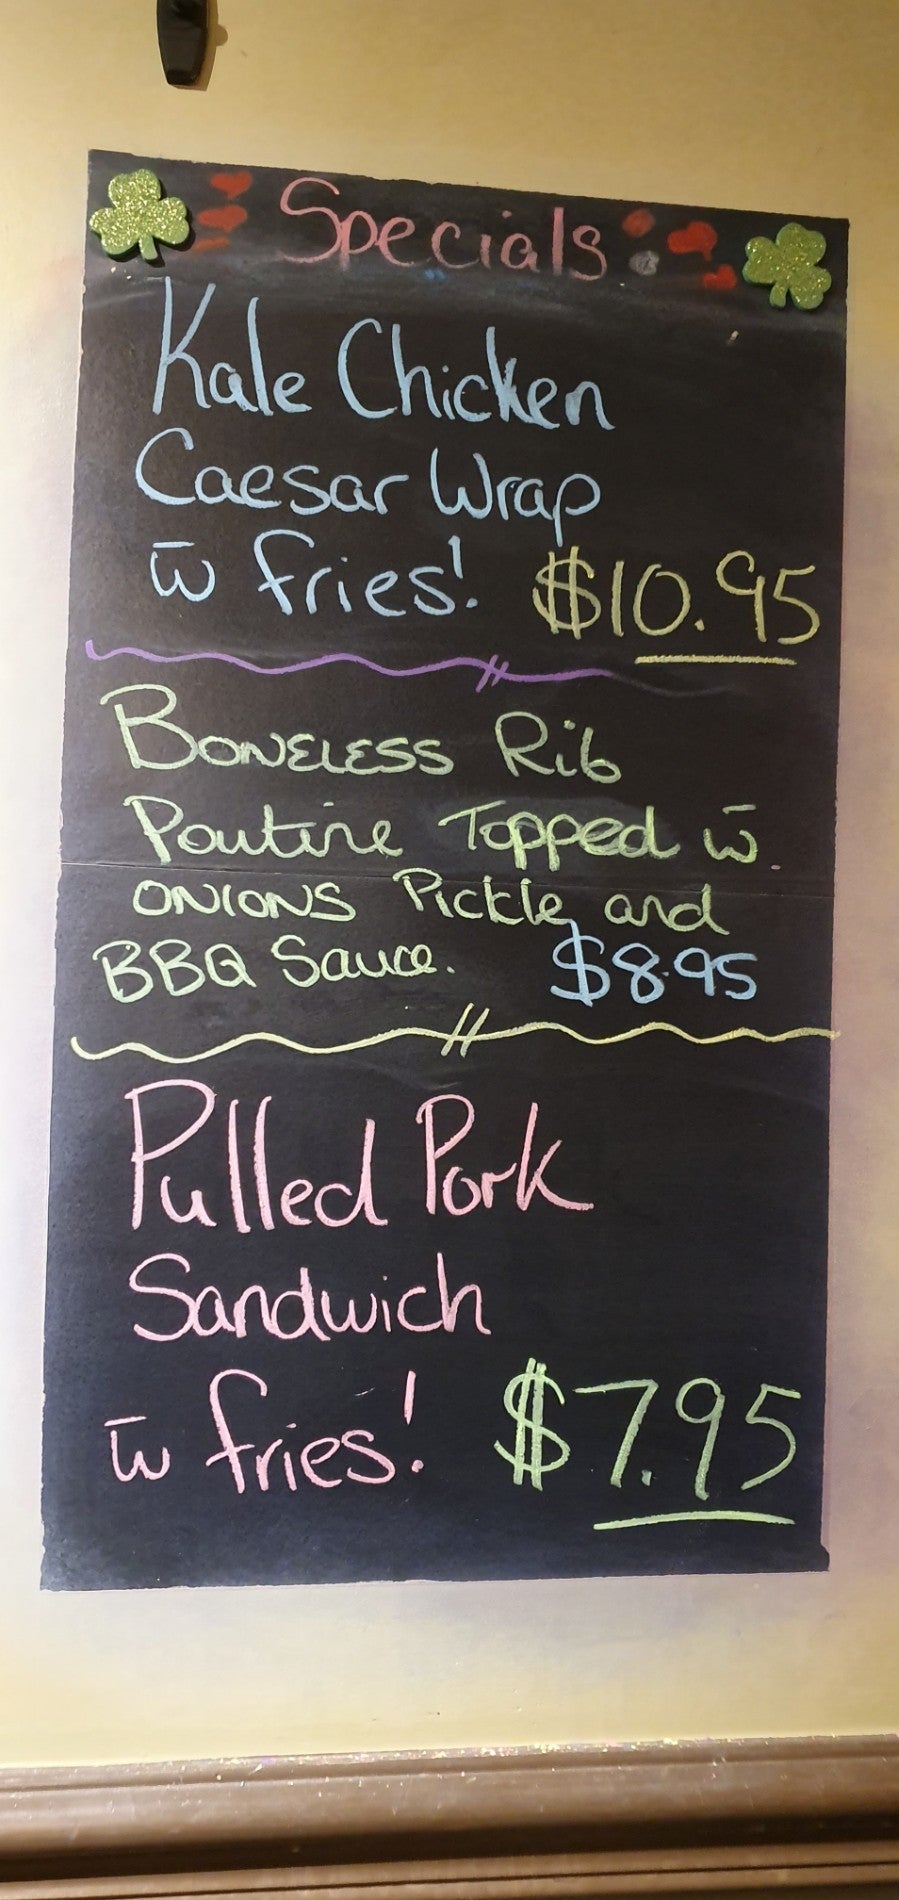 Specials
Kale Chicken
Caesar Wrap
w̄ fries! $10.95
Boneless Rib
Poutine Topped w̄
onions Pickle and
BBQ Sauce. $8.95
Pulled Pork
Sandwich
w̄ fries! $7.95